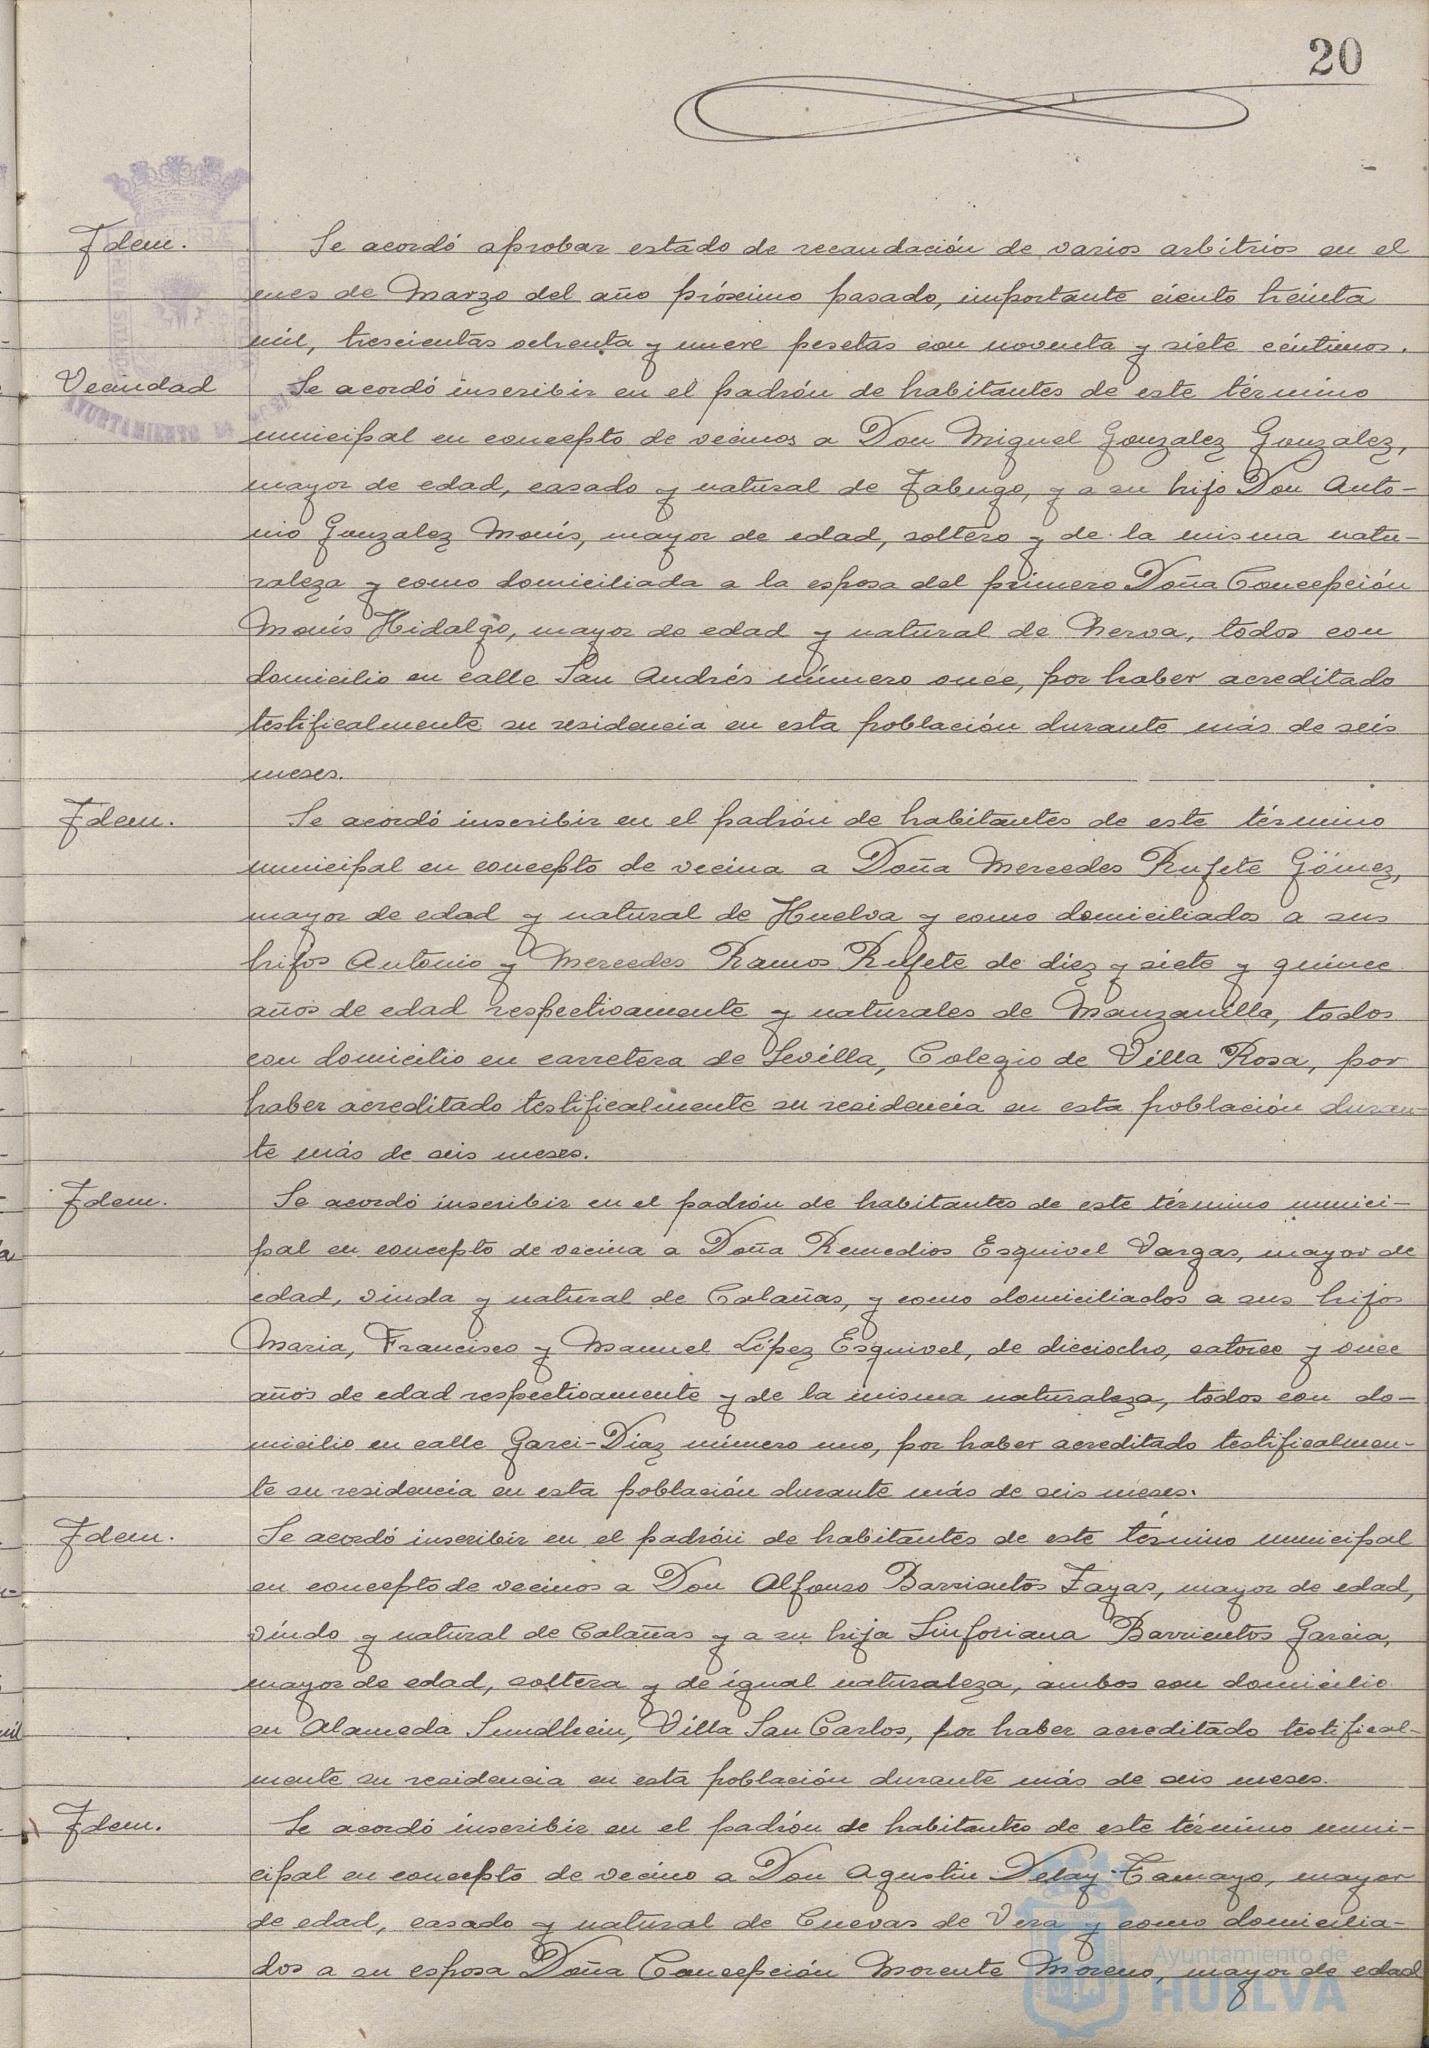 20
Idem. Se acordó aprobar estado de recaudación de varios arbitrios en el
mes de Marzo del año próximo pasado, importante ciento treinta
mil, trescientas ochenta y nueve pesetas con noventa y siete céntimos.
Vecindad Se acordó inscribir en el padrón de habitantes de este término
municipal en concepto de vecinos a Don Miguel Gonzalez Gonzalez,
mayor de edad, casado y natural de Jabugo, y a su hijo Don Anto-
nio Gonzalez Monís, mayor de edad, soltero y de la misma natu-
raleza y como domiciliada a la esposa del primero Doña Concepción
Monís Hidalgo, mayor de edad y natural de Nerva, todos con
domicilio en calle San Andrés número once, por haber acreditado
testificalmente su residencia en esta población durante más de seis
meses.
Idem. Se acordó inscribir en el padrón de habitantes de este término
municipal en concepto de vecina a Doña Mercedes Rufete Gómez,
mayor de edad y natural de Huelva y como domiciliados a sus
hijos Antonio y Mercedes Ramos Rufete de diez y siete y quince
años de edad respectivamente y naturales de Manzanilla, todos
con domicilio en carretera de Sevilla, Colegio de Villa Rosa, por
haber acreditado testificalmente su residencia en esta población duran-
te más de seis meses.
Idem. Se acordó inscribir en el padrón de habitantes de este término munici-
pal en concepto de vecina a Doña Remedios Esquivel Vargas, mayor de
edad, viuda y natural de Calañas, y como domiciliados a sus hijos
Maria, Francisco y Manuel López Esquivel, de dieciocho, catorce y once
años de edad respectivamente y de la misma naturaleza, todos con do-
micilio en calle Garci-Díaz número uno, por haber acreditado testificalmen-
te su residencia en esta población durante más de seis meses.
Idem. Se acordó inscribir en el padrón de habitantes de este término municipal
en concepto de vecinos a Don Alfonso Barrientos Zayas, mayor de edad,
viudo y natural de Calañas y a su hija Sinforiana Barrientos Garcia,
mayor de edad, soltera y de igual naturaleza, ambos con domicilio
en Alameda Sundhein, Villa San Carlos, por haber acreditado testifical-
mente su residencia en esta población durante más de seis meses.
Idem. Se acordó inscribir en el padrón de habitantes de este término muni-
cipal en concepto de vecino a Don Agustin Delay Tamayo, mayor
de edad, casado y natural de Cuevas de Vera y como domicilia-
dos a su esposa Doña Concepción Morente Moreno, mayor de edad
AYUNTAMIENTO DE
Ayuntamiento de
HUELVA